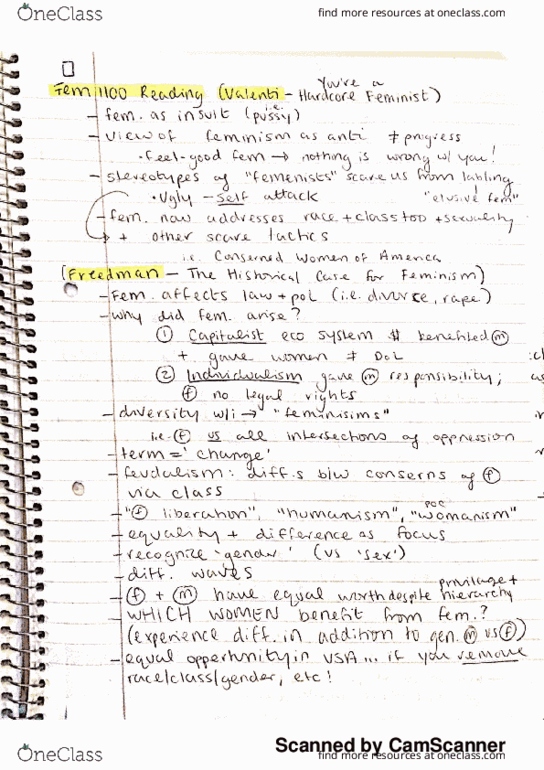 OneClass
find more resources at oneclass.com
You're a
Fem 1100 Reading (Valenti - Hardcore Feminist)
i.e.
- fem. as insult (pussy)
- view of feminism as anti ≠ progress
• feel-good fem → nothing is wrong w/ you!
- stereotypes of "femenists" scare us from labling
• Ugly - self attack "elusive fem"
- fem. now addresses race + class too + sexuality
+ other scare tactics
i.e. Conserned Women of America
(Freedman - The Historical Case for Feminism)
- Fem. affects law + pol (i.e. divorce, rape)
- why did fem. arise?
① Capitalist eco system $ benefited ⓜ
+ gave women ≠ DoL
② Individualism gave ⓜ responsibility;
ⓕ no legal rights
- diversity w/i → "feminisims"
i.e. ⓕ vs all intersections of oppression
- term = 'change'
- feudalism: diff.s b/w conserns of ⓕ
via class
POC
- "ⓕ liberation", "humanism", "womanism"
- equality + difference as focus
- recognize 'gender' (vs 'sex')
- diff. waves
privilage +
- ⓕ + ⓜ have equal worth despite hierarchy
- WHICH WOMEN benefit from fem.?
(experience diff. in addition to gen. ⓜ vs ⓕ)
- equal oppertunity in USA ... if you remove
race/class/gender, etc!
Scanned by CamScanner
OneClass
find more resources at oneclass.com